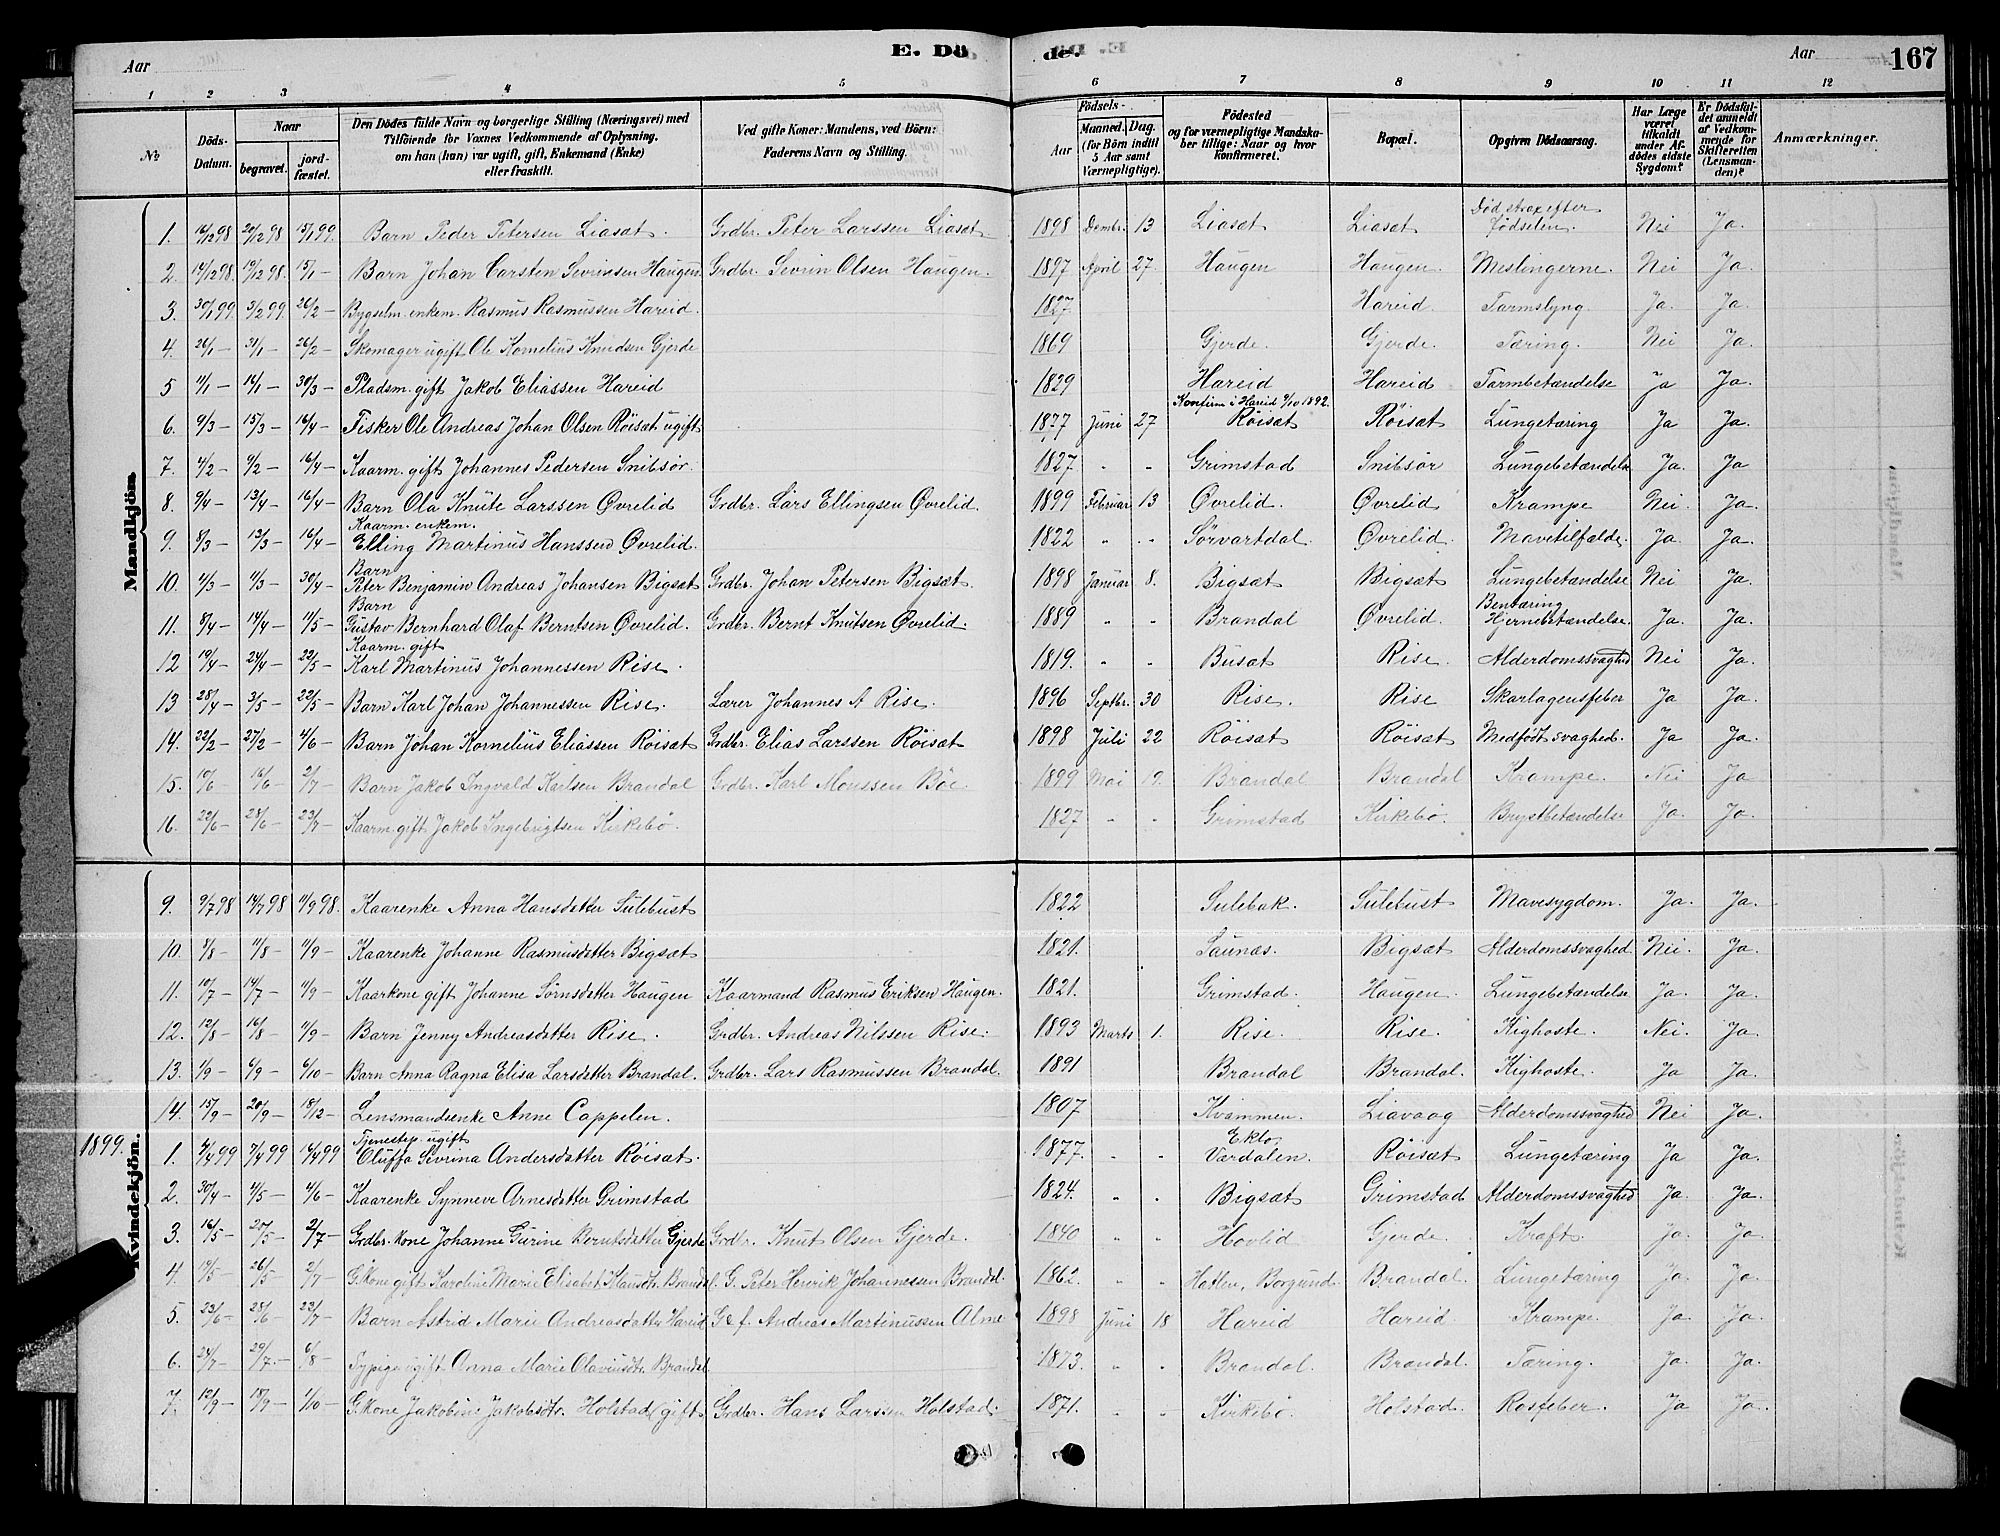 E. Döde.
167
Aar Aar
1 2 3 4 5 6 7 8 9 10 11 12
No
Döds-Datum.
Naar begravet. jordfæstet.
Den Dödes fulde Navn og borgerlige Stilling (Næringsvei) med
Tilföiende for Voxnes Vedkommende af Oplysning,
om han (hun) var ugift, gift, Enkemand (Enke)
eller fraskilt.
Ved gifte Koner: Mandens, ved Börn:
Faderens Navn og Stilling.
Födsels-
Aar Maaned. Dag.
(for Börn indtil
5 Aar samt
Værnepligtige).
Födested
og for værnepligtige Mandskaber tillige: Naar og hvor
konfirmeret.
Bopæl.
Opgiven Dödsaarsag.
Har Læge været tilkaldt under Afdödes sidste Sygdom?
Er Dödsfaldet anmeldt af Vedkommende for Skifteretten (Lensmanden)?
Anmærkninger.
Mandkjön
1. 16/12 98 20/12 98 15/1 99. Barn Peder Petersen Liasæt. Grdbr. Peter Larssen Liasæt 1898 Dcmbr. 13 Liasæt Liasæt Död strax efter Födselen. Nei Ja.
2. 14/12 98. 19/12 98. 15/1 – Barn Johan Carsten Sevrinsen Haugen Grdbr. Sevrin Olsen Haugen. 1897 April 27. Haugen Haugen. Meslingerne. Nei Ja.
3. 30/1 99. 3/2 99. 26/2 – Bygselm. enkem. Rasmus Rasmussen Hareid. 1827. Hareid. Tarmslyng. Ja. Ja.
4. 26/1 – 31/1 – 26/2 – Skomager ugift Ole Kornelius Knudsen Gjerde 1869 Gjerde. Gjerde. Tæring. Nei Ja.
5 – – 30/3 – Pladsm. gift Jakob Eliassen Hareid 1829 Hareid Hareid Tarmbetændelse Ja Ja.
6. 9/3 – 15/3 – 16/4 – Fisker Ole Andreas Johan Olsen Röisæt ugift 1877 Juni 27 Konfirm. i Hareid 1892. Röisæt Röisæt Lungetæring Ja Ja.
7. 4/2 – 9/2 – 16/4 – Kaarm. gift Johannes Pedersen Snibsör. 1827. " " Grimstad Snibsör Lungebetændelse Ja. Ja
8. 9/4 – 13/4 – 16/4 – Barn Ola Knute Larssen Øvrelid Grdbr. Lars Ellingsen Øvrelid. 1899 Februar 13 Øvrelid. Øvrelid Krampe Nei. Ja.
9. 8/3 – 13/3 – 16/4 – Kaarm. enkem. Elling Martinus Hanssen Øvrelid. 1822 " " Sörvartdal. Øvrelid. Mavetilfælde. Ja. Ja.
10. 4/3 – 11/3 – 30/4 – Barn Peter Benjamin Andreas Johansen Bigsæt Grdbr. Johan Petersen Bigsæt. 1898 Januar 8. Bigsæt Bigsæt Lungebetændelse Nei Ja.
11. 8/4 – 14/4 – 11/5 – Barn Gustav Bernhard Olaf Berntsen Øvrelid. Grdbr. Bernt Knutsen Øvrelid. 1889 " " Brandal Øvrelid. Bentæring Hjernebetændelse. Ja. Ja.
12 19/4 – 24/4 – 22/5 – Kaarm. gift Karl Martinus Johannessen Rise. 1819. " " Busæt Rise. Alderdomssvaghed Nei Ja.
13 28/4 – 3/5 – 22/5 – Barn Karl Johan Johannessen Rise. Lærer Johannes A Rise. 1896 Septbr. 30 Rise. Rise Skarlagensfeber Ja Ja.
14. 22/2 – 27/2 – 4/6 – Barn Johan Kornelius Eliassen Röisæt Grdbr. Elias Larssen Röisæt 1898 Juli 22 Röisæt Röisæt Medfödt svaghed. Ja Ja.
15. 10/6 – 16/6 – 2/7 – Barn Jakob Ingvald Karlsen Brandal Grdbr. Karl Monssen Böe. 1899 Mai 19. Brandal Brandal Krampe. Nei Ja
16. 22/6 – 28/6 – 23/7 – Kaarm. gift Jakob Ingebrigtsen Kirkebö. 1827 " " Grimstad Kirkebö. Brystbetændelse Ja. Ja.
Kvindekjön.
9. 9/7 98 14/7 98 11/9 98. Kaarenke Anna Hansdatter Sulebust 1822 Sulebak. Sulebust Mavesygdom. Ja. Ja.
10. 8/8 – 11/8 – 11/9 – Kaarenke Johanne Rasmusdatter Bigsæt 1821. Saunæs. Bigsæt Alderdomssvaghed. Nei. Ja.
11. 10/7 – 14/7 – 11/9 – Kaarkone gift Johanne Sörnsdatter Haugen Kaarmand Rasmus Eriksen Haugen. 1821. Grimstad. Haugen. Lungebetændelse Ja. Ja.
12. 12/8 – 16/8 – 11/9 – Barn Jenny Andreasdatter Rise. Grdbr. Andreas Nilssen Rise. 1893 Marts 1. Rise. Rise. Kighoste. Nei. Ja.
13. 1/9 – 6/9 – 6/10 – Barn Anna Ragna Elisa Larsdatter Brandal. Grdbr. Lars Rasmussen Brandal. 1891 Brandal Brandal. Kighoste. Ja Ja.
14. 15/9 – 20/9 – 18/12 – Lensmandsenke Anne Cappelen. 1807 Kvammen. Liavaag Alderdomssvaghed Nei Ja.
1899. 1. 4/4 99 7/4 99 16/4 99 Tjenestep. ugift Oluffa Sevrina Andersdatter Röisæt. 1877. " " Ekto, Værdalen. Röisæt Lungetæring Ja Ja.
2. 30/4 – 4/5 – 4/6 – Kaarenke Synneve Arnesdatter Grimstad 1824. " " Bigsæt Grimstad Alderdomssvaghed Ja. Ja.
3. 16/5 – 20/5 – 2/7 – Grdbr. kone Johanne Gurine Berntsdatter Gjerde Grdbr. Knut Olsen Gjerde. 1840 " " Hovlid Gjerde. Kræft. Ja. Ja.
4. 19/5 – 26/5 – 2/7 – G. Kone gift Karoline Marie Elisabet Klausdtr. Brandal. G. Peter Henrik Johannessen Brandal 1862. " " Hatlen, Borgund Brandal. Lungetæring Ja. Ja.
5. 23/6 – 28/6 – 23/7 – Barn Astrid Marie Andreasdatter Hareid G&f. Andreas Martinussen Alme 1898 Juni 18 Hareid Hareid Krampe. Ja Ja.
6. 24/7 – 29/7 – 6/8 – Sypige ugift Anna Marie Olaviusdtr. Brandal 1873. " " Brandal. Brandal. Tæring. Ja. Ja.
7. 12/9 – 18/9 – 1/10 – G. Kone Jakobine Jakobsdtr. Holstad (gift Grdbr. Hans Larssen Holstad. 1871. " " Kirkebö. Holstad. Rosfeber. Ja Ja.